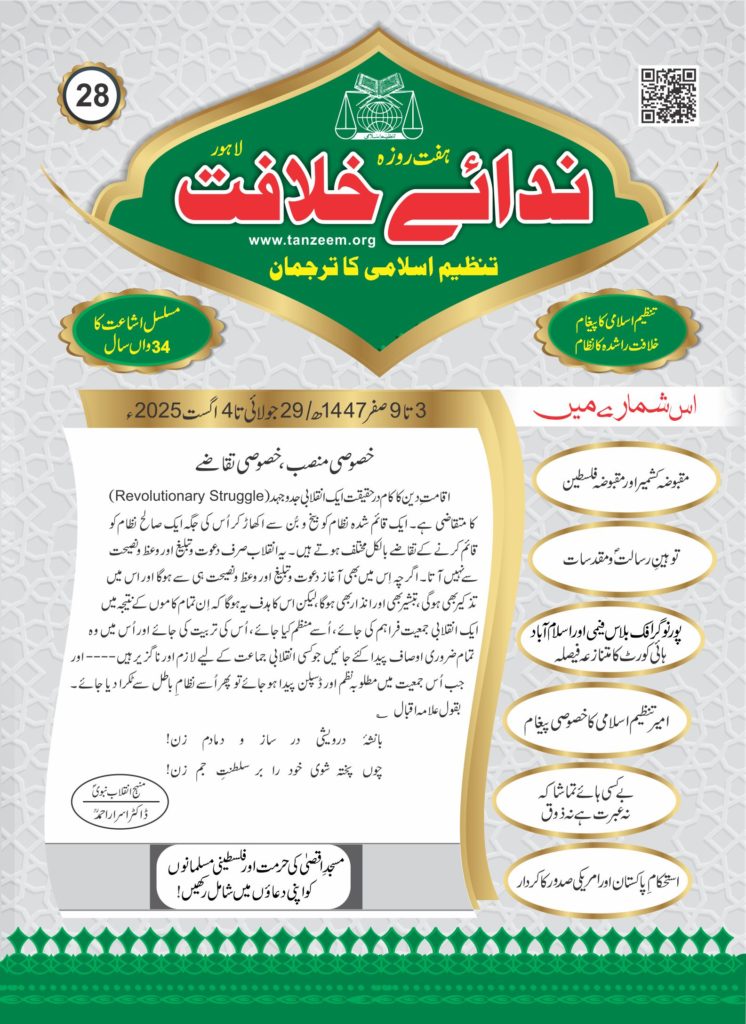 28
تنظیم اسلامی
ہفت روزہ
لاہور
ندائے خلافت
www.tanzeem.org
تنظیم اسلامی کا ترجمان
تنظیم اسلامی کا پیغام
خلافت راشدہ کا نظام
مسلسل اشاعت کا
34واں سال
اس شمارے میں
مقبوضہ کشمیر اور مقبوضہ فلسطین
توہینِ رسالتؐ و مقدسات
پورنوگرافک بلاس فیمی اور اسلام آباد
ہائی کورٹ کا متنازعہ فیصلہ
امیر تنظیم اسلامی کا خصوصی پیغام
بے کسی ہائے تماشا کہ
نہ عبرت ہے نہ ذوق
استحکامِ پاکستان اور امریکی صدور کا کردار
3 تا 9 صفر 1447ھ/ 29 جولائی تا 4 اگست 2025ء
خصوصی منصب، خصوصی تقاضے
اقامتِ دین کا کام در حقیقت ایک انقلابی جدوجہد (Revolutionary Struggle)
کا متقاضی ہے۔ ایک قائم شدہ نظام کو بیخ و بُن سے اکھاڑ کر اُس کی جگہ ایک صالح نظام کو
قائم کرنے کے تقاضے بالکل مختلف ہوتے ہیں۔ یہ انقلاب صرف دعوت و تبلیغ اور وعظ و نصیحت
سے نہیں آتا۔ اگرچہ اِس میں بھی آغاز دعوت و تبلیغ اور وعظ و نصیحت ہی سے ہوگا اور اس میں
تذکیر بھی ہوگی، تبشیر بھی اور انذار بھی ہوگا، لیکن اس کا ہدف یہ ہوگا کہ اِن تمام کاموں کے نتیجہ میں
ایک انقلابی جمعیت فراہم کی جائے، اُسے منظم کیا جائے، اُس کی تربیت کی جائے اور اُس میں وہ
تمام ضروری اوصاف پیدا کئے جائیں جو کسی انقلابی جماعت کے لیے لازم اور ناگزیر ہیں ---- اور
جب اُس جمعیت میں مطلوبہ نظم اور ڈسپلن پیدا ہو جائے تو پھر اُسے نظامِ باطل سے ٹکرا دیا جائے۔
بقول علامہ اقبال ؎
بانشۂ درویشی در ساز و دمادم زن!
چوں پختہ شوی خود را بر سلطنتِ جم زن!
منہج انقلاب نبویؐ
ڈاکٹر اسرار احمدؒ
مسجدِ اقصیٰ کی حرمت اور فلسطینی مسلمانوں
کو اپنی دعاؤں میں شامل رکھیں!